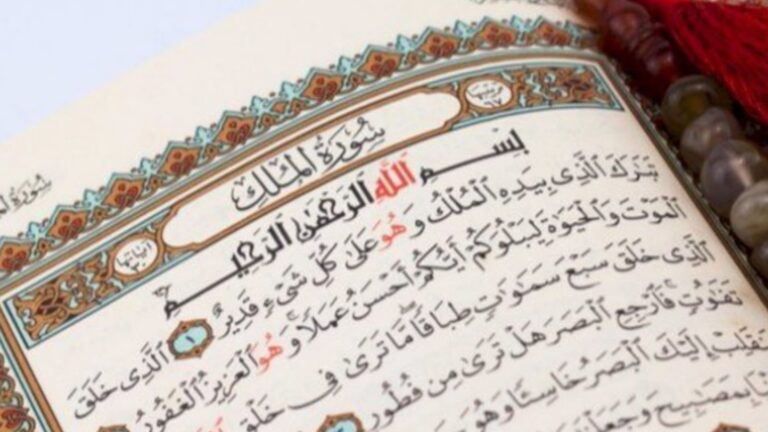 سُورَةُ
سُورَةُ المُلْكِ
بِسْمِ اللَّهِ الرَّحْمَٰنِ الرَّحِيمِ
تَبَٰرَكَ الَّذِى بِيَدِهِ الْمُلْكُ وَهُوَ عَلَىٰ كُلِّ شَىْءٍ قَدِيرٌ ١ الَّذِى خَلَقَ
الْمَوْتَ وَالْحَيَوٰةَ لِيَبْلُوَكُمْ أَيُّكُمْ أَحْسَنُ عَمَلًا وَهُوَ الْعَزِيزُ الْغَفُورُ
الَّذِى خَلَقَ سَبْعَ سَمَٰوَٰتٍ طِبَاقًا مَّا تَرَىٰ فِى خَلْقِ
تَفَٰوُتٍ فَارْجِعِ الْبَصَرَ هَلْ تَرَىٰ مِن فُطُورٍ
نقَلِبْ إِلَيْكَ الْبَصَرُ خَاسِئًا وَهُوَ
بِمَصَٰبِيحَ